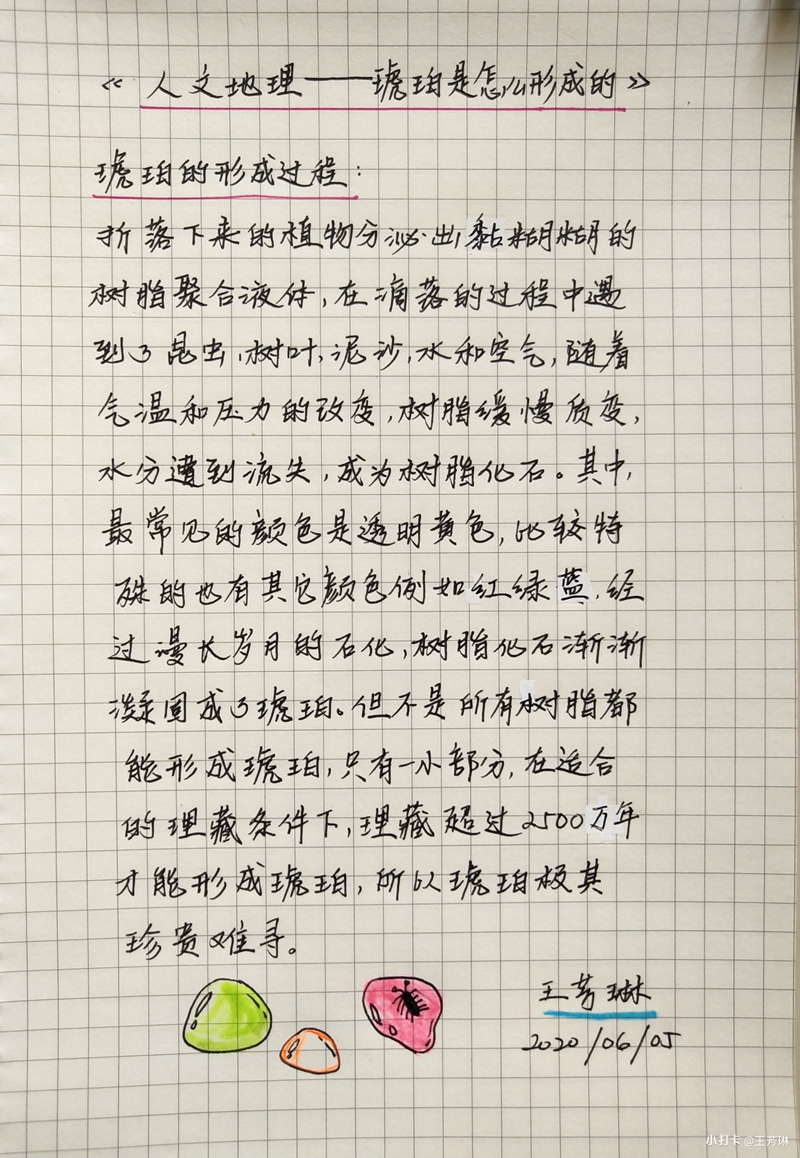 《人文地理——琥珀是怎么形成的》
琥珀的形成过程：
折落下来的植物分泌出黏糊糊的
树脂聚合液体，在滴落的过程中遇
到了昆虫，树叶，泥沙，水和空气，随着
气温和压力的改变，树脂缓慢质变，
水分遭到流失，成为树脂化石。其中，
最常见的颜色是透明黄色，比较特
殊的也有其它颜色例如红绿蓝，经
过漫长岁月的石化，树脂化石渐渐
凝固成了琥珀。但不是所有树脂都
能形成琥珀，只有一小部分，在适合
的理藏条件下，理藏超过2500万年
才能形成琥珀，所以琥珀极其
珍贵难寻。
王芳琳
2020/06/05
小打卡@王芳琳